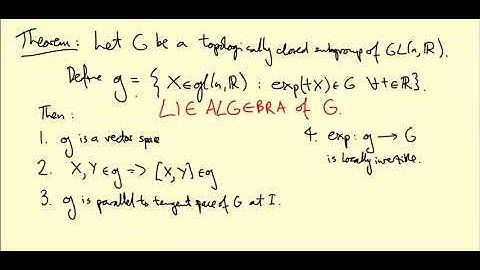 Theorem: Let G be a topologically closed subgroup of GL(n,ℝ).
Define 𝔤 = { X∈gl(n,ℝ) : exp(tX)∈G ∀t∈ℝ}.
LIE ALGEBRA of G.
Then:
1. 𝔤 is a vector space
2. X,Y∈𝔤 => [X,Y]∈𝔤
3. 𝔤 is parallel to tangent space of G at I.
4. exp: 𝔤 → G
is locally invertible.